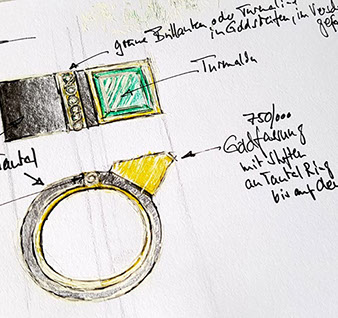 grüne Brillanten oder Turmalin
in Goldstreifen, im Versch
gef
Turmalin
Tantal
750/000
Goldfassung
mit Stotten
an Tantal Ring
bis auf den